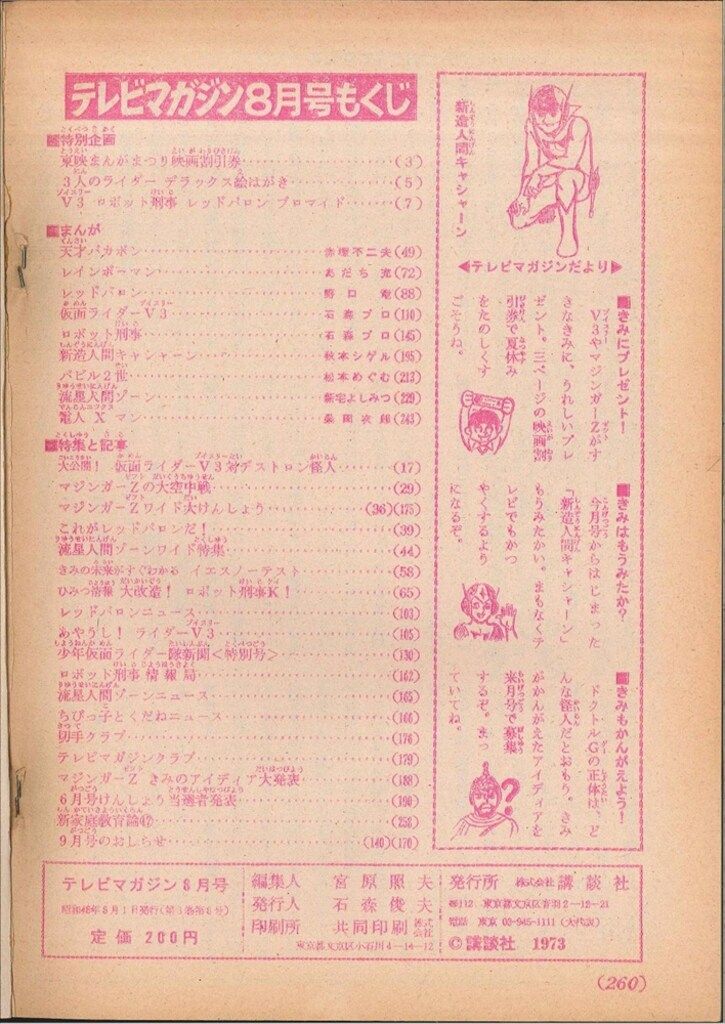 テレビマガジン8月号もくじ
■特別企画
東映まんがまつり映画割引券……(3)
3人のライダー デラックス絵はがき……(5)
V3 ロボット刑事 レッドバロン ブロマイド……(7)
■まんが
天才バカボン……赤塚不二夫(49)
レインボーマン……あだち 充(72)
レッドバロン……野口 竜(88)
仮面ライダーV3……石森プロ(110)
ロボット刑事……石森プロ(145)
新造人間キャシャーン……秋本シゲル(195)
バビル2世……松本めぐむ(213)
流星人間ゾーン……新宅よしみつ(229)
電人Xマン……桑田次郎(243)
■特集と記事
大公開! 仮面ライダーV3対デストロン怪人……(17)
マジンガーZの大空中戦……(29)
マジンガーZワイド大けんしょう……(36)(175)
これがレッドバロンだ!……(39)
流星人間ゾーンワイド特集……(44)
きみの未来がすぐわかる イエスノーテスト……(58)
ひみつ情報 大改造! ロボット刑事K!……(65)
レッドバロンニュース……(103)
あやうし! ライダーV3……(105)
少年仮面ライダー隊新聞<特別号>……(130)
ロボット刑事情報局……(162)
流星人間ゾーンニュース……(165)
ちびっ子とくだねニュース……(166)
切手クラブ……(176)
テレビマガジンクラブ……(179)
マジンガーZ きみのアイディア大発表……(188)
6月号けんしょう当選者発表……(190)
新家庭教育論㊼……(258)
9月号のおしらせ……(140)(170)
新造人間キャシャーン
◀テレビマガジンだより▶
■きみにプレゼント!
V3やマジンガーZがす
きなきみに、うれしいプレ
ゼント。三ページの映画割
引券で夏休み
をたのしくす
ごそうね。
■きみはもうみたか?
今月号からはじまった
「新造人間キャシャーン」
もうみたかい。まもなくテ
レビでもかつ
やくするよう
になるぞ。
■きみもかんがえよう!
ドクトルGの正体は、ど
んな怪人だとおもう。きみ
がかんがえたアイディアを
来月号で募集
するぞ。まっ
ていてね。
?
テレビマガジン8月号
昭和48年8月1日発行(第3巻第8号)
定価 200円
編集人 宮原照夫
発行人 石森俊夫
印刷所 共同印刷株式会社
東京都文京区小石川4-14-12
発行所 株式会社 講談社
〒112 東京都文京区音羽2-12-21
電話 東京 03-945-1111(大代表)
©講談社 1973
(260)